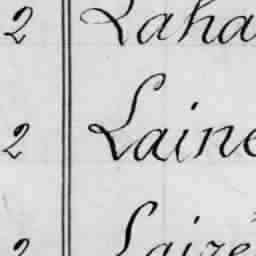 2 Laha
2 Laine
2 Lairé